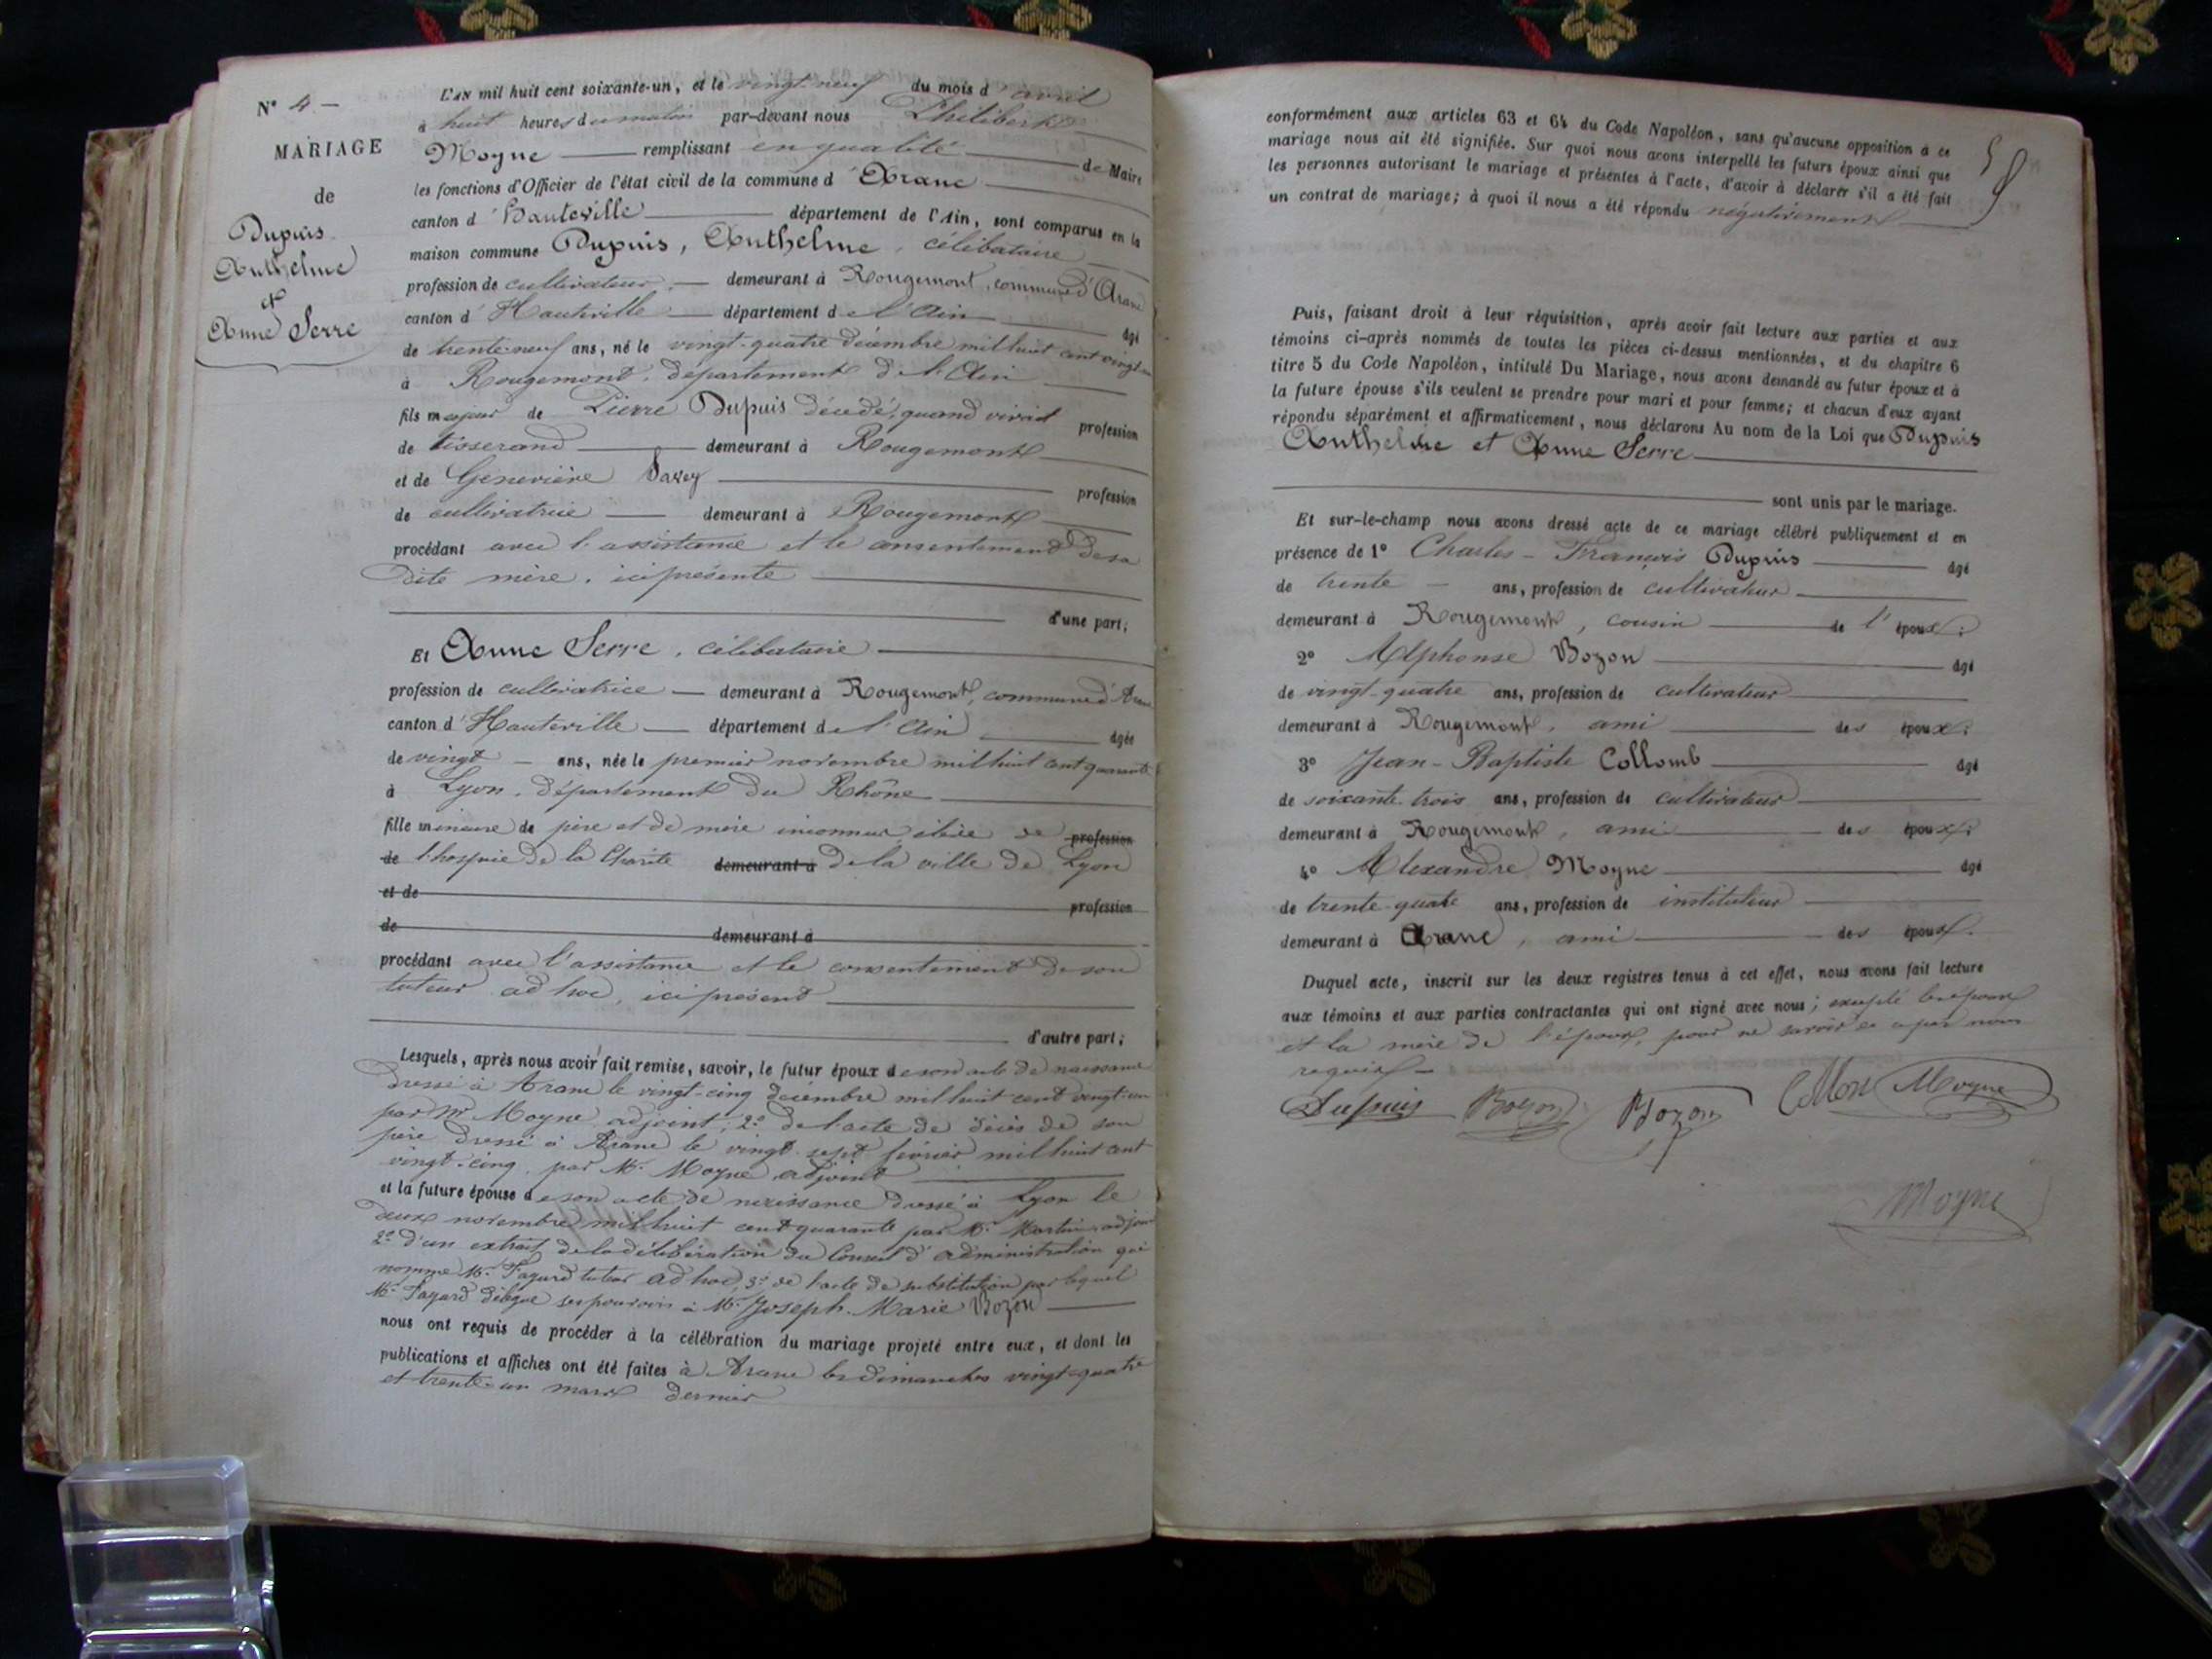 N° 4 —
MARIAGE
de
Dupuis
Anthelme
et
Anne Serre
L'AN mil huit cent soixante-un, et le vingt-neuf du mois d'avril
à huit heures du matin par-devant nous Philibert
Moyne remplissant en qualité de Maire
les fonctions d'Officier de l'état civil de la commune d'Aranc
canton d'Hauteville département de l'Ain, sont comparus en la
maison commune Dupuis, Anthelme, célibataire
profession de cultivateur demeurant à Rougemont, commune d'Aranc
canton d'Hauteville département de l'Ain âgé
de trente-neuf ans, né le vingt-quatre décembre mil huit cent vingt-un
à Rougemont, département de l'Ain
fils majeur de Pierre Dupuis décédé, quand vivait profession
de tisserand demeurant à Rougemont
et de Geneviève Savey profession
de cultivatrice demeurant à Rougemont
procédant avec l'assistance et le consentement de sa
dite mère, ici présente
d'une part;
Et Anne Serre, célibataire
profession de cultivatrice demeurant à Rougemont, commune d'Aranc
canton d'Hauteville département de l'Ain âgée
de vingt ans, née le premier novembre mil huit cent quarante
à Lyon, département du Rhône
fille mineure de père et de mère inconnus, élève de profession
de l'hospice de la Charité demeurant à de la ville de Lyon
et de profession
de demeurant à
procédant avec l'assistance et le consentement de son
tuteur ad hoc, ici présent
d'autre part;
Lesquels, après nous avoir fait remise, savoir, le futur époux de son acte de naissance
dressé à Aranc le vingt-cinq décembre mil huit cent vingt-un
par Mr Moyne adjoint; 2° de l'acte de décès de son
père dressé à Aranc le vingt sept février mil huit cent
vingt-cinq, par Mr Moyne adjoint
et la future épouse de son acte de naissance dressé à Lyon le
deux novembre mil huit cent quarante par Mr Martin adjoint
2° d'un extrait de la délibération du Conseil d'administration qui
nomme Mr Fayard tuteur ad hoc, 3° de l'acte de substitution par lequel
Mr Fayard délègue ses pouvoirs à Mr Joseph-Marie Bozon
nous ont requis de procéder à la célébration du mariage projeté entre eux, et dont les
publications et affiches ont été faites à Aranc les dimanches vingt-quatre
et trente-un mars dernier
conformément aux articles 63 et 64 du Code Napoléon, sans qu'aucune opposition à ce
mariage nous ait été signifiée. Sur quoi nous avons interpellé les futurs époux ainsi que
les personnes autorisant le mariage et présentes à l'acte, d'avoir à déclarer s'il a été fait
un contrat de mariage; à quoi il nous a été répondu négativement
Puis, faisant droit à leur réquisition, après avoir fait lecture aux parties et aux
témoins ci-après nommés de toutes les pièces ci-dessus mentionnées, et du chapitre 6
titre 5 du Code Napoléon, intitulé Du Mariage, nous avons demandé au futur époux et à
la future épouse s'ils veulent se prendre pour mari et pour femme; et chacun d'eux ayant
répondu séparément et affirmativement, nous déclarons Au nom de la Loi que Dupuis
Anthelme et Anne Serre
sont unis par le mariage.
Et sur-le-champ nous avons dressé acte de ce mariage célébré publiquement et en
présence de 1° Charles-François Dupuis âgé
de trente ans, profession de cultivateur
demeurant à Rougemont, cousin de l'époux;
2° Alphonse Bozon âgé
de vingt-quatre ans, profession de cultivateur
demeurant à Rougemont, ami des époux;
3° Jean-Baptiste Collomb âgé
de soixante-trois ans, profession de cultivateur
demeurant à Rougemont, ami des époux;
4° Alexandre Moyne âgé
de trente-quatre ans, profession de instituteur
demeurant à Aranc, ami des époux.
Duquel acte, inscrit sur les deux registres tenus à cet effet, nous avons fait lecture
aux témoins et aux parties contractantes qui ont signé avec nous; excepté les époux
et la mère de l'époux, pour ne savoir de ce par nous
requis
Dupuis Bozon Bozon Moyne
Moyne